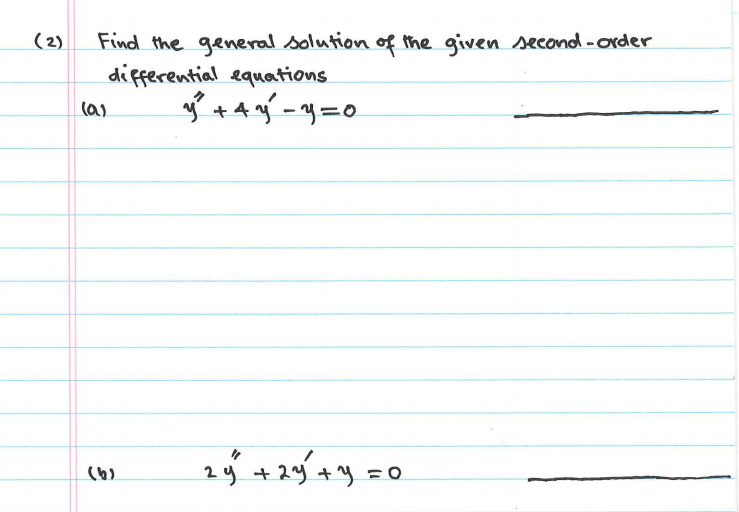 (2) Find the general solution of the given second-order
differential equations
(a) y″ + 4y′ − y = 0
(b) 2y″ + 2y′ + y = 0